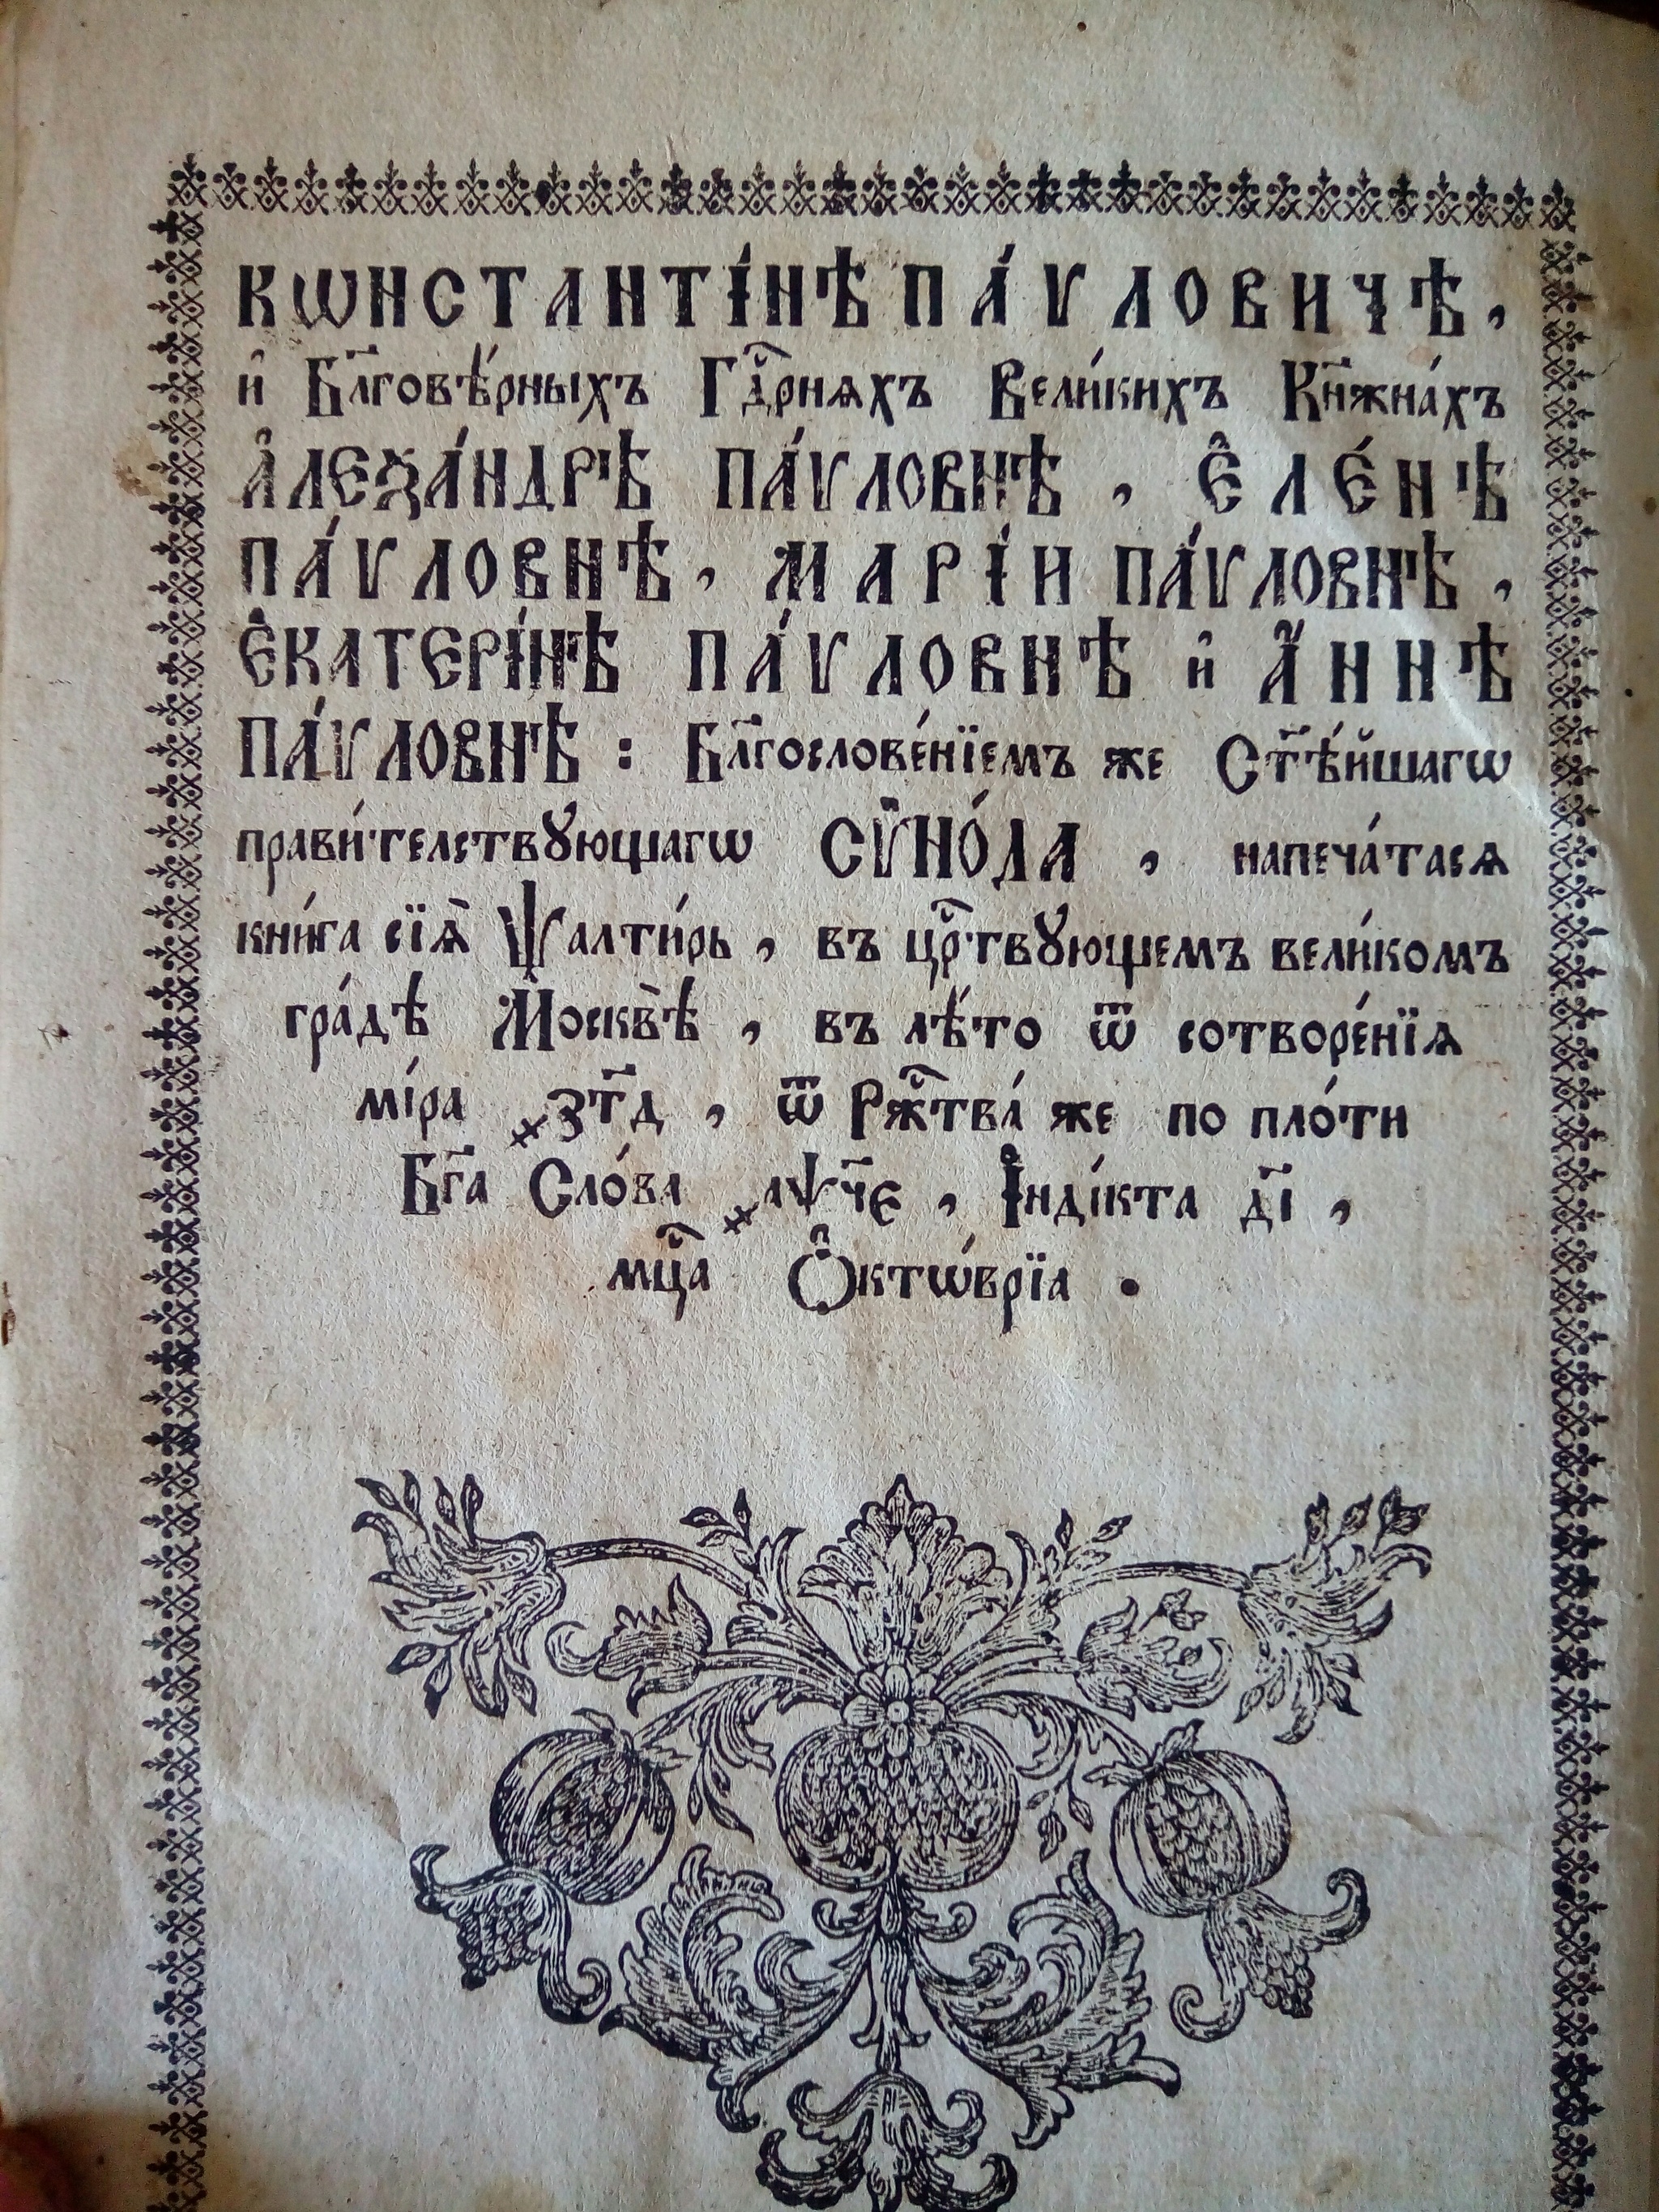 КѠНСТАНТІ́НѢ ПА́ѴЛОВИЧѢ,
и҆ Бл҃говѣ́рныхъ Гдⷭ҇рнѧхъ Вели́кихъ Кн҃жна́хъ
А҆ЛЕѮА́НДРѢ ПА́ѴЛОВНѢ, Е҆ЛЕ́НѢ
ПА́ѴЛОВНѢ, МАРІ́И ПА́ѴЛОВНѢ,
Е҆КАТЕРІ́НѢ ПА́ѴЛОВНѢ и҆ А҆́ННѢ
ПА́ѴЛОВНѢ: Бл҃гослове́нїемъ же Ст҃ѣ́йшагѡ
прави́телствꙋющагѡ СѴ̈НО́ДА, напеча́тасѧ
кни́га сїѧ̀ Ѱалти́рь, въ црⷭ҇твꙋющемъ вели́комъ
гра́дѣ Москвѣ̀, въ лѣ́то ѿ сотворе́нїѧ
мі́ра ҂зт҃д, ѿ Ржⷭ҇тва́ же по пло́ти
Бг҃а Сло́ва ҂аѱч҃є, І҆нді́кта д҃і,
мцⷭ҇а Ѻ҆ктѡ́врїа.